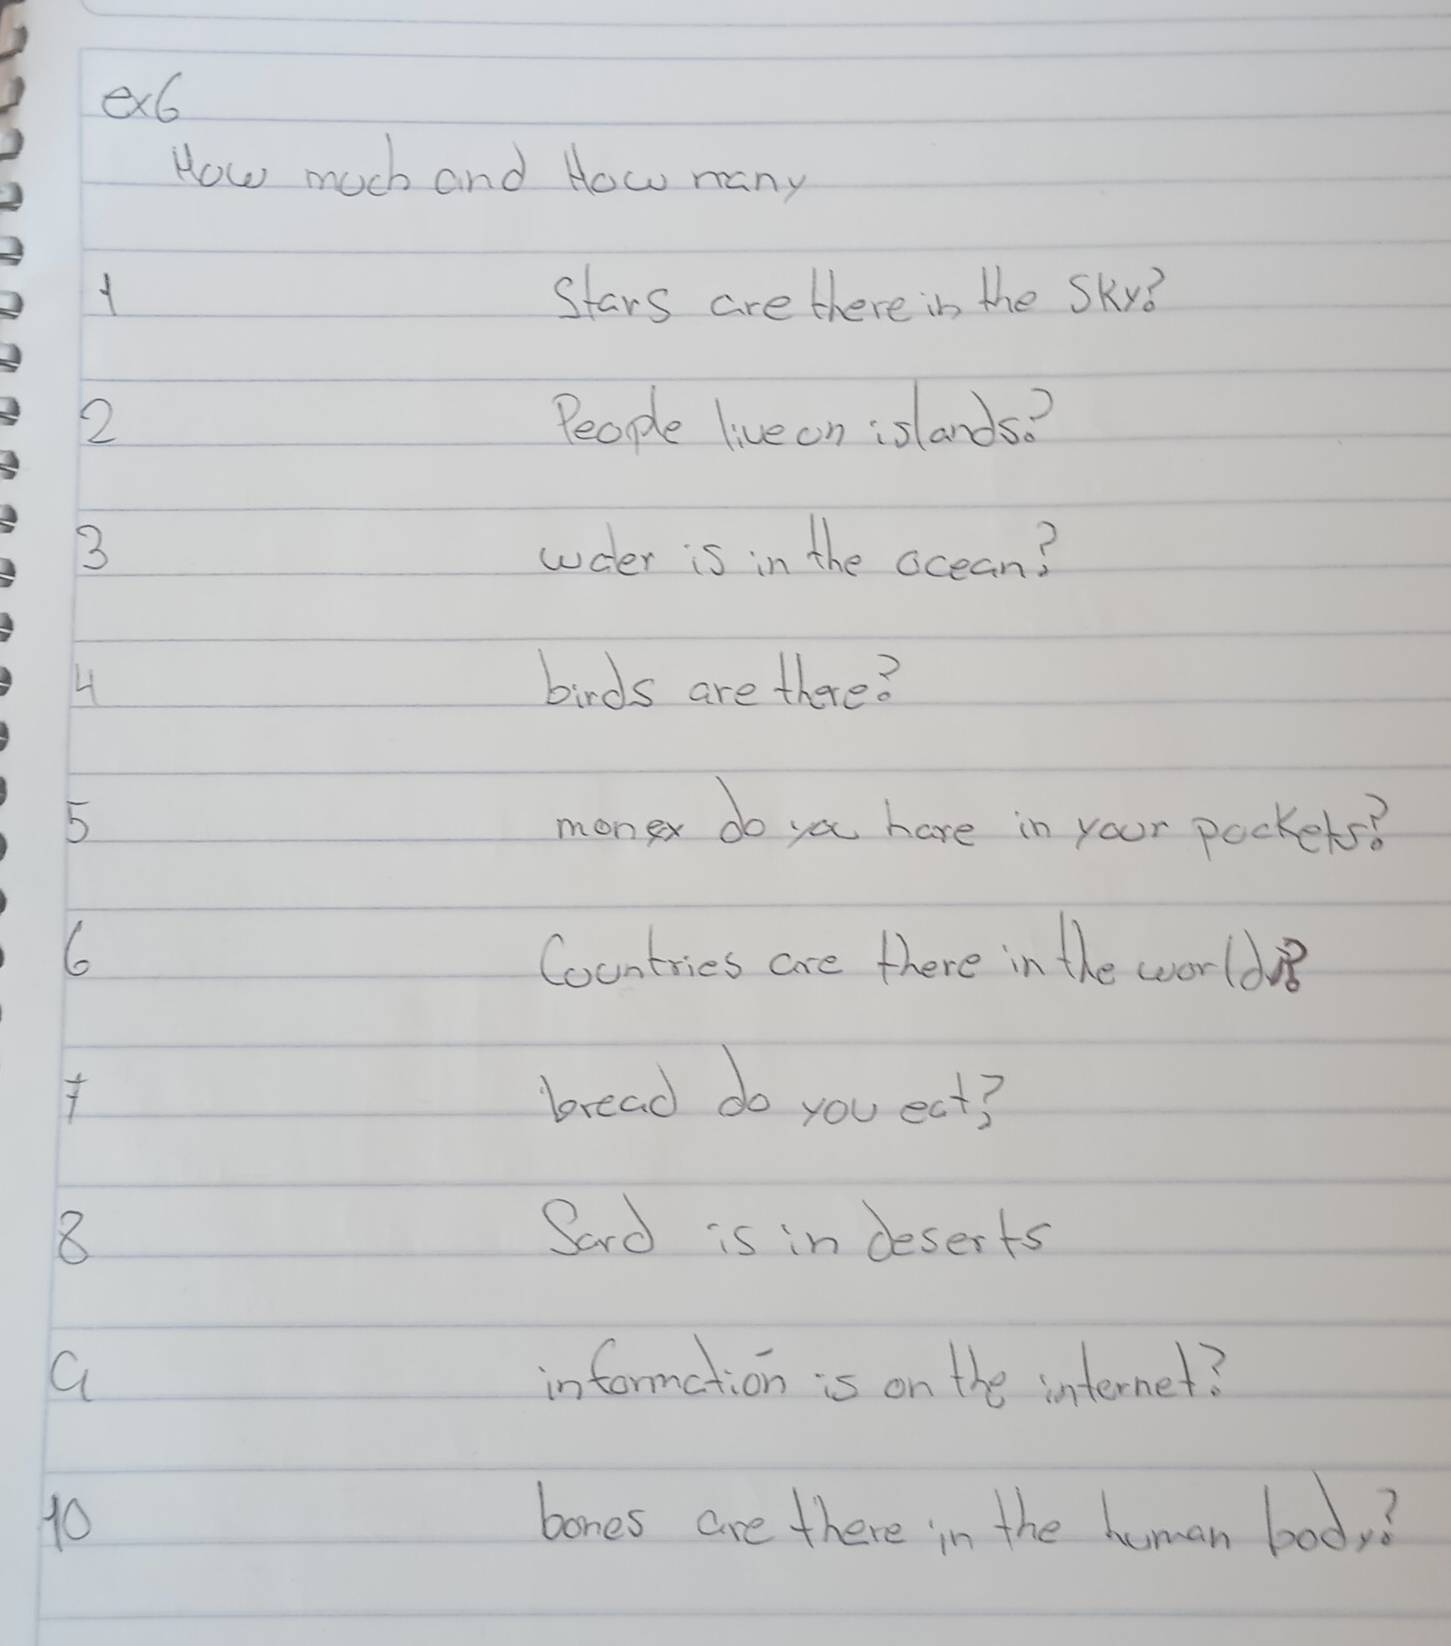 ex6
How much and How many
1 Stars are there in the sky?
2 People live on islands?
3 water is in the ocean?
4 birds are there?
5 money do you have in your pockets?
6 Countries are there in the world?
7 bread do you eat?
8 Sand is in deserts
9 information is on the internet?
10 bones are there in the human body?